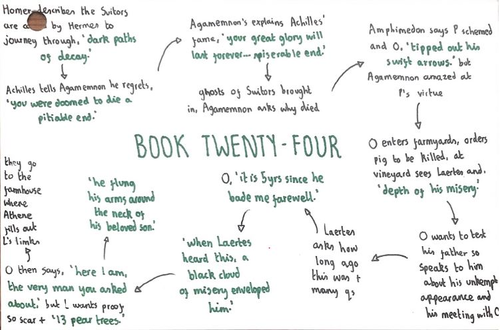 Homer describes the Suitors
are by Hermes to
journey through, 'dark paths
of decay.'
Achilles tells Agamemnon he regrets,
'you were doomed to die a
pitiable end.'
Agamemnon's explains Achilles'
fame, 'your great glory will
last forever... miserable end.'
ghosts of Suitors brought
in, Agamemnon asks why died
Amphimedon says P schemed
and O, 'tipped out his
swift arrows.' but
Agamemnon amazed at
P's virtue
O enters farmyards, orders
pig to be killed, at
vineyard sees Laertes and,
'depth of his misery.'
O wants to test
his father so
speaks to him
about his unkempt
appearance and
his meeting with O
Laertes
asks how
long ago
this was +
many qs
BOOK TWENTY-FOUR
O, 'it is 5yrs since he
bade me farewell.'
'when Laertes
heard this, a
black cloud
of misery enveloped
him.'
O then says, 'here I am,
the very man you asked
about.' but L wants proof
so scar + '13 pear trees.'
'he flung
his arms around
the neck of
his beloved son.'
they go
to the
farmhouse
where
Athene
fills out
L's limbs